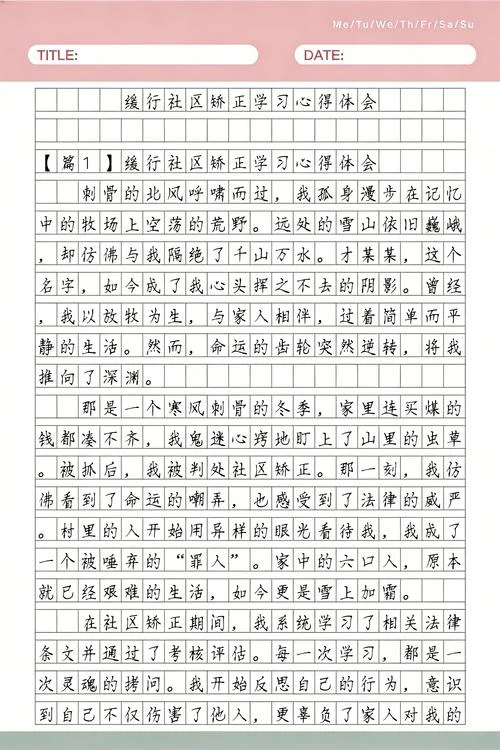 Me/Tu/We/Th/Fr/Sa/Su
TITLE:
DATE:
缓行社区矫正学习心得体会
【篇1】缓行社区矫正学习心得体会
刺骨的北风呼啸而过，我孤身漫步在记忆
中的牧场上空荡的荒野。远处的雪山依旧巍峨
，却仿佛与我隔绝了千山万水。才某某，这个
名字，如今成了我心头挥之不去的阴影。曾经
，我以放牧为生，与家人相伴，过着简单而平
静的生活。然而，命运的齿轮突然逆转，将我
推向了深渊。
那是一个寒风刺骨的冬季，家里连买煤的
钱都凑不齐，我鬼迷心窍地盯上了山里的虫草
。被抓后，我被判处社区矫正。那一刻，我仿
佛看到了命运的嘲弄，也感受到了法律的威严
。村里的人开始用异样的眼光看待我，我成了
一个被唾弃的“罪人”。家中的六口人，原本
就已经艰难的生活，如今更是雪上加霜。
在社区矫正期间，我系统学习了相关法律
条文并通过了考核评估。每一次学习，都是一
次灵魂的拷问。我开始反思自己的行为，意识
到自己不仅伤害了他人，更辜负了家人对我的